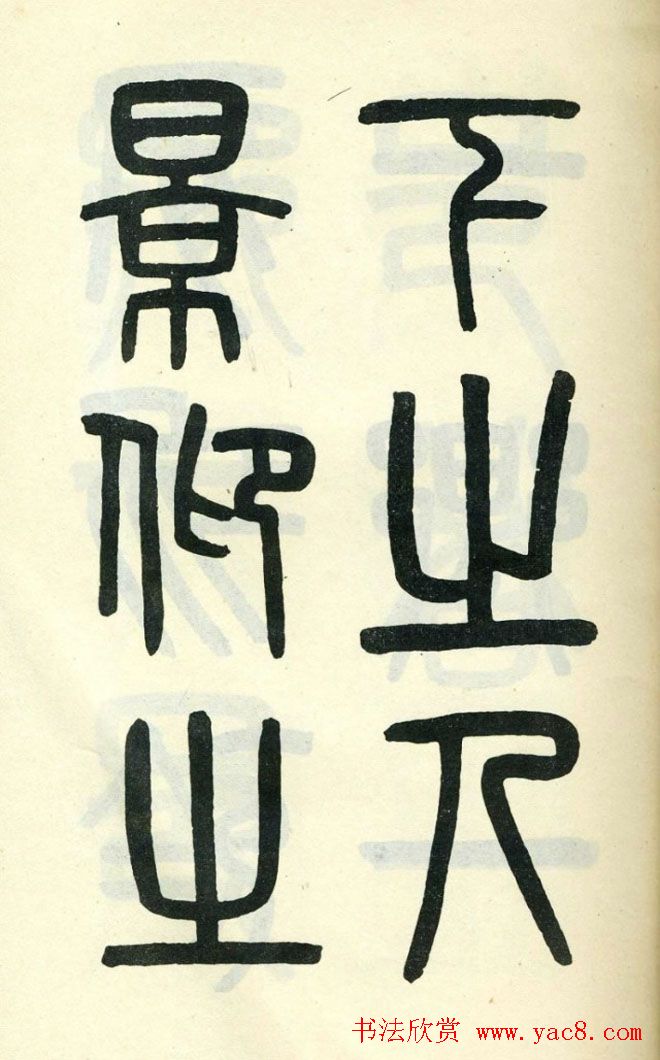 下之人
景仰之
书法欣赏 www.yac8.com